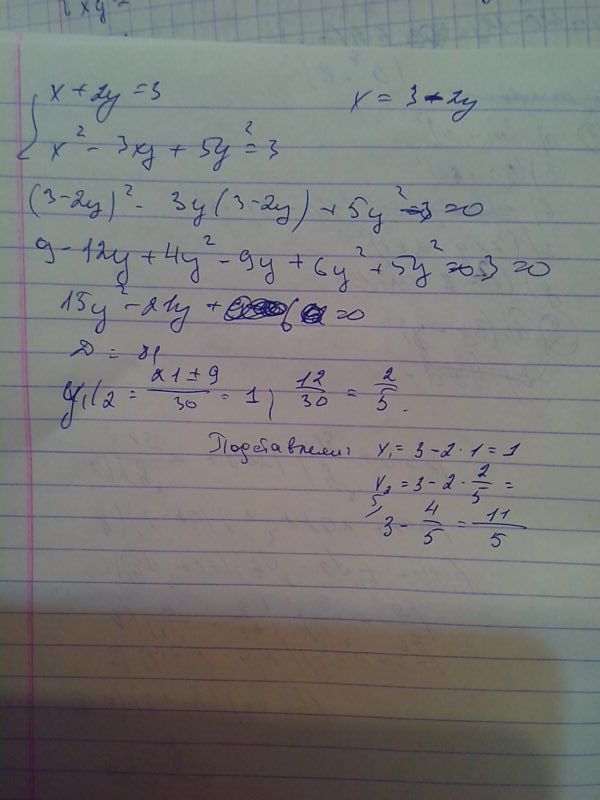 x y
x + 2y = 3 x = 3 - 2y
x² - 3xy + 5y² = 3
(3-2y)² - 3y(3-2y) + 5y² - 3 = 0
9 - 12y + 4y² - 9y + 6y² + 5y² - 3 = 0
15y² - 21y + 6 = 0
D = 81
y₁,₂ = 21 ± 9 / 30 = 1; 12/30 = 2/5.
Подставляем: x₁ = 3 - 2 · 1 = 1
x₂ = 3 - 2 · 2/5 =
3 - 4/5 = 11/5